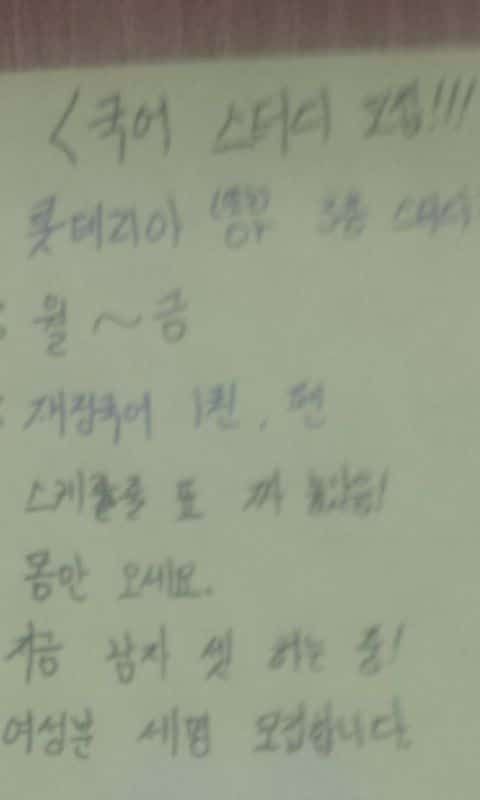 <국어 스터디 모집!!!
롯데리아 3층 스터디
월 ~ 금
재정국어 1권, 편
스케쥴를 또 짜 놓았음!
몸만 오세요.
지금 남자 셋 하는 중!
여성분 세명 모집합니다.